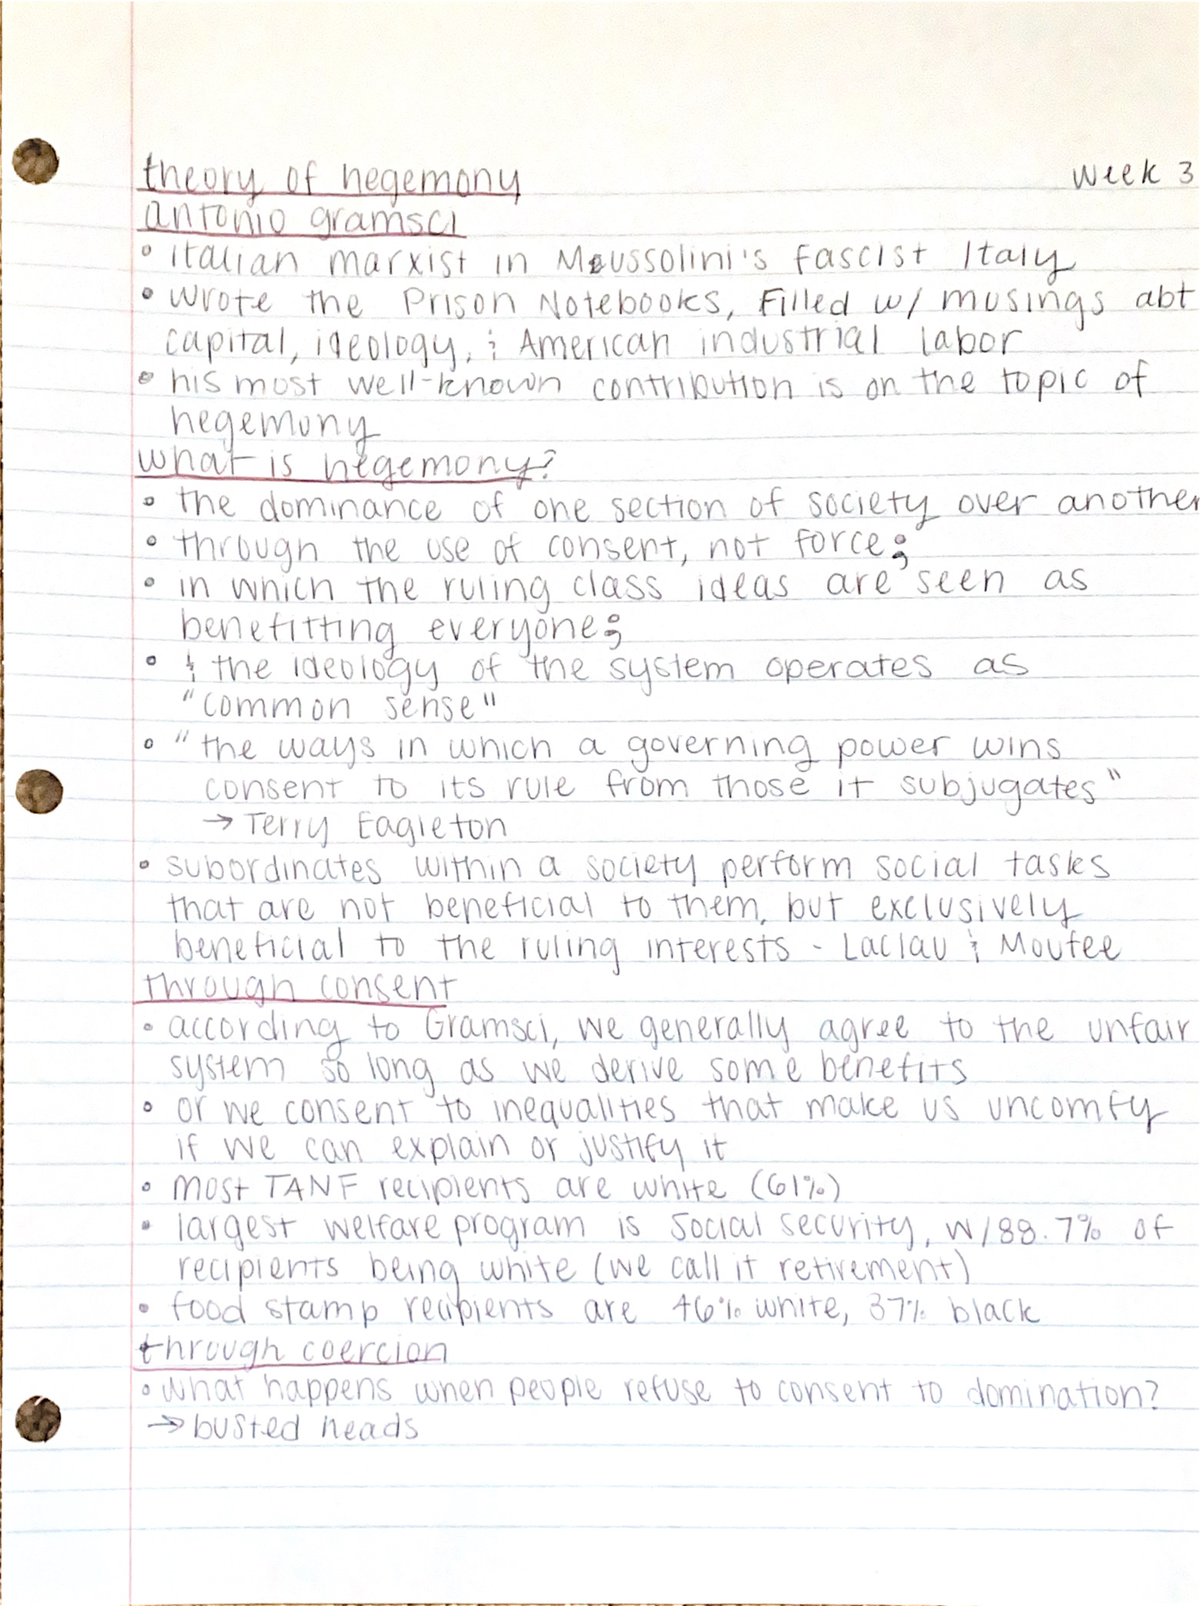 theory of hegemony
week 3
antonio gramsci
• italian marxist in Moussolini's fascist Italy
• wrote the Prison Notebooks, Filled w/ musings abt
capital, ideology, & American industrial labor
• his most well-known contribution is on the topic of
hegemony
what is hegemony?
• the dominance of one section of society over another
• through the use of consent, not force;
• in which the ruling class ideas are seen as
benefitting everyone;
• & the ideology of the system operates as
"common sense"
• "the ways in which a governing power wins
consent to its rule from those it subjugates"
→ Terry Eagleton
• subordinates within a society perform social tasks
that are not beneficial to them, but exclusively
beneficial to the ruling interests - Laclau & Moufee
through consent
• according to Gramsci, we generally agree to the unfair
system so long as we derive some benefits
• or we consent to inequalities that make us uncomfy
if we can explain or justify it
• most TANF recipients are white (61%)
• largest welfare program is Social security, w/88.7% of
recipients being white (we call it retirement)
• food stamp recipients are 46% white, 37% black
through coercion
• what happens when people refuse to consent to domination?
→ busted heads